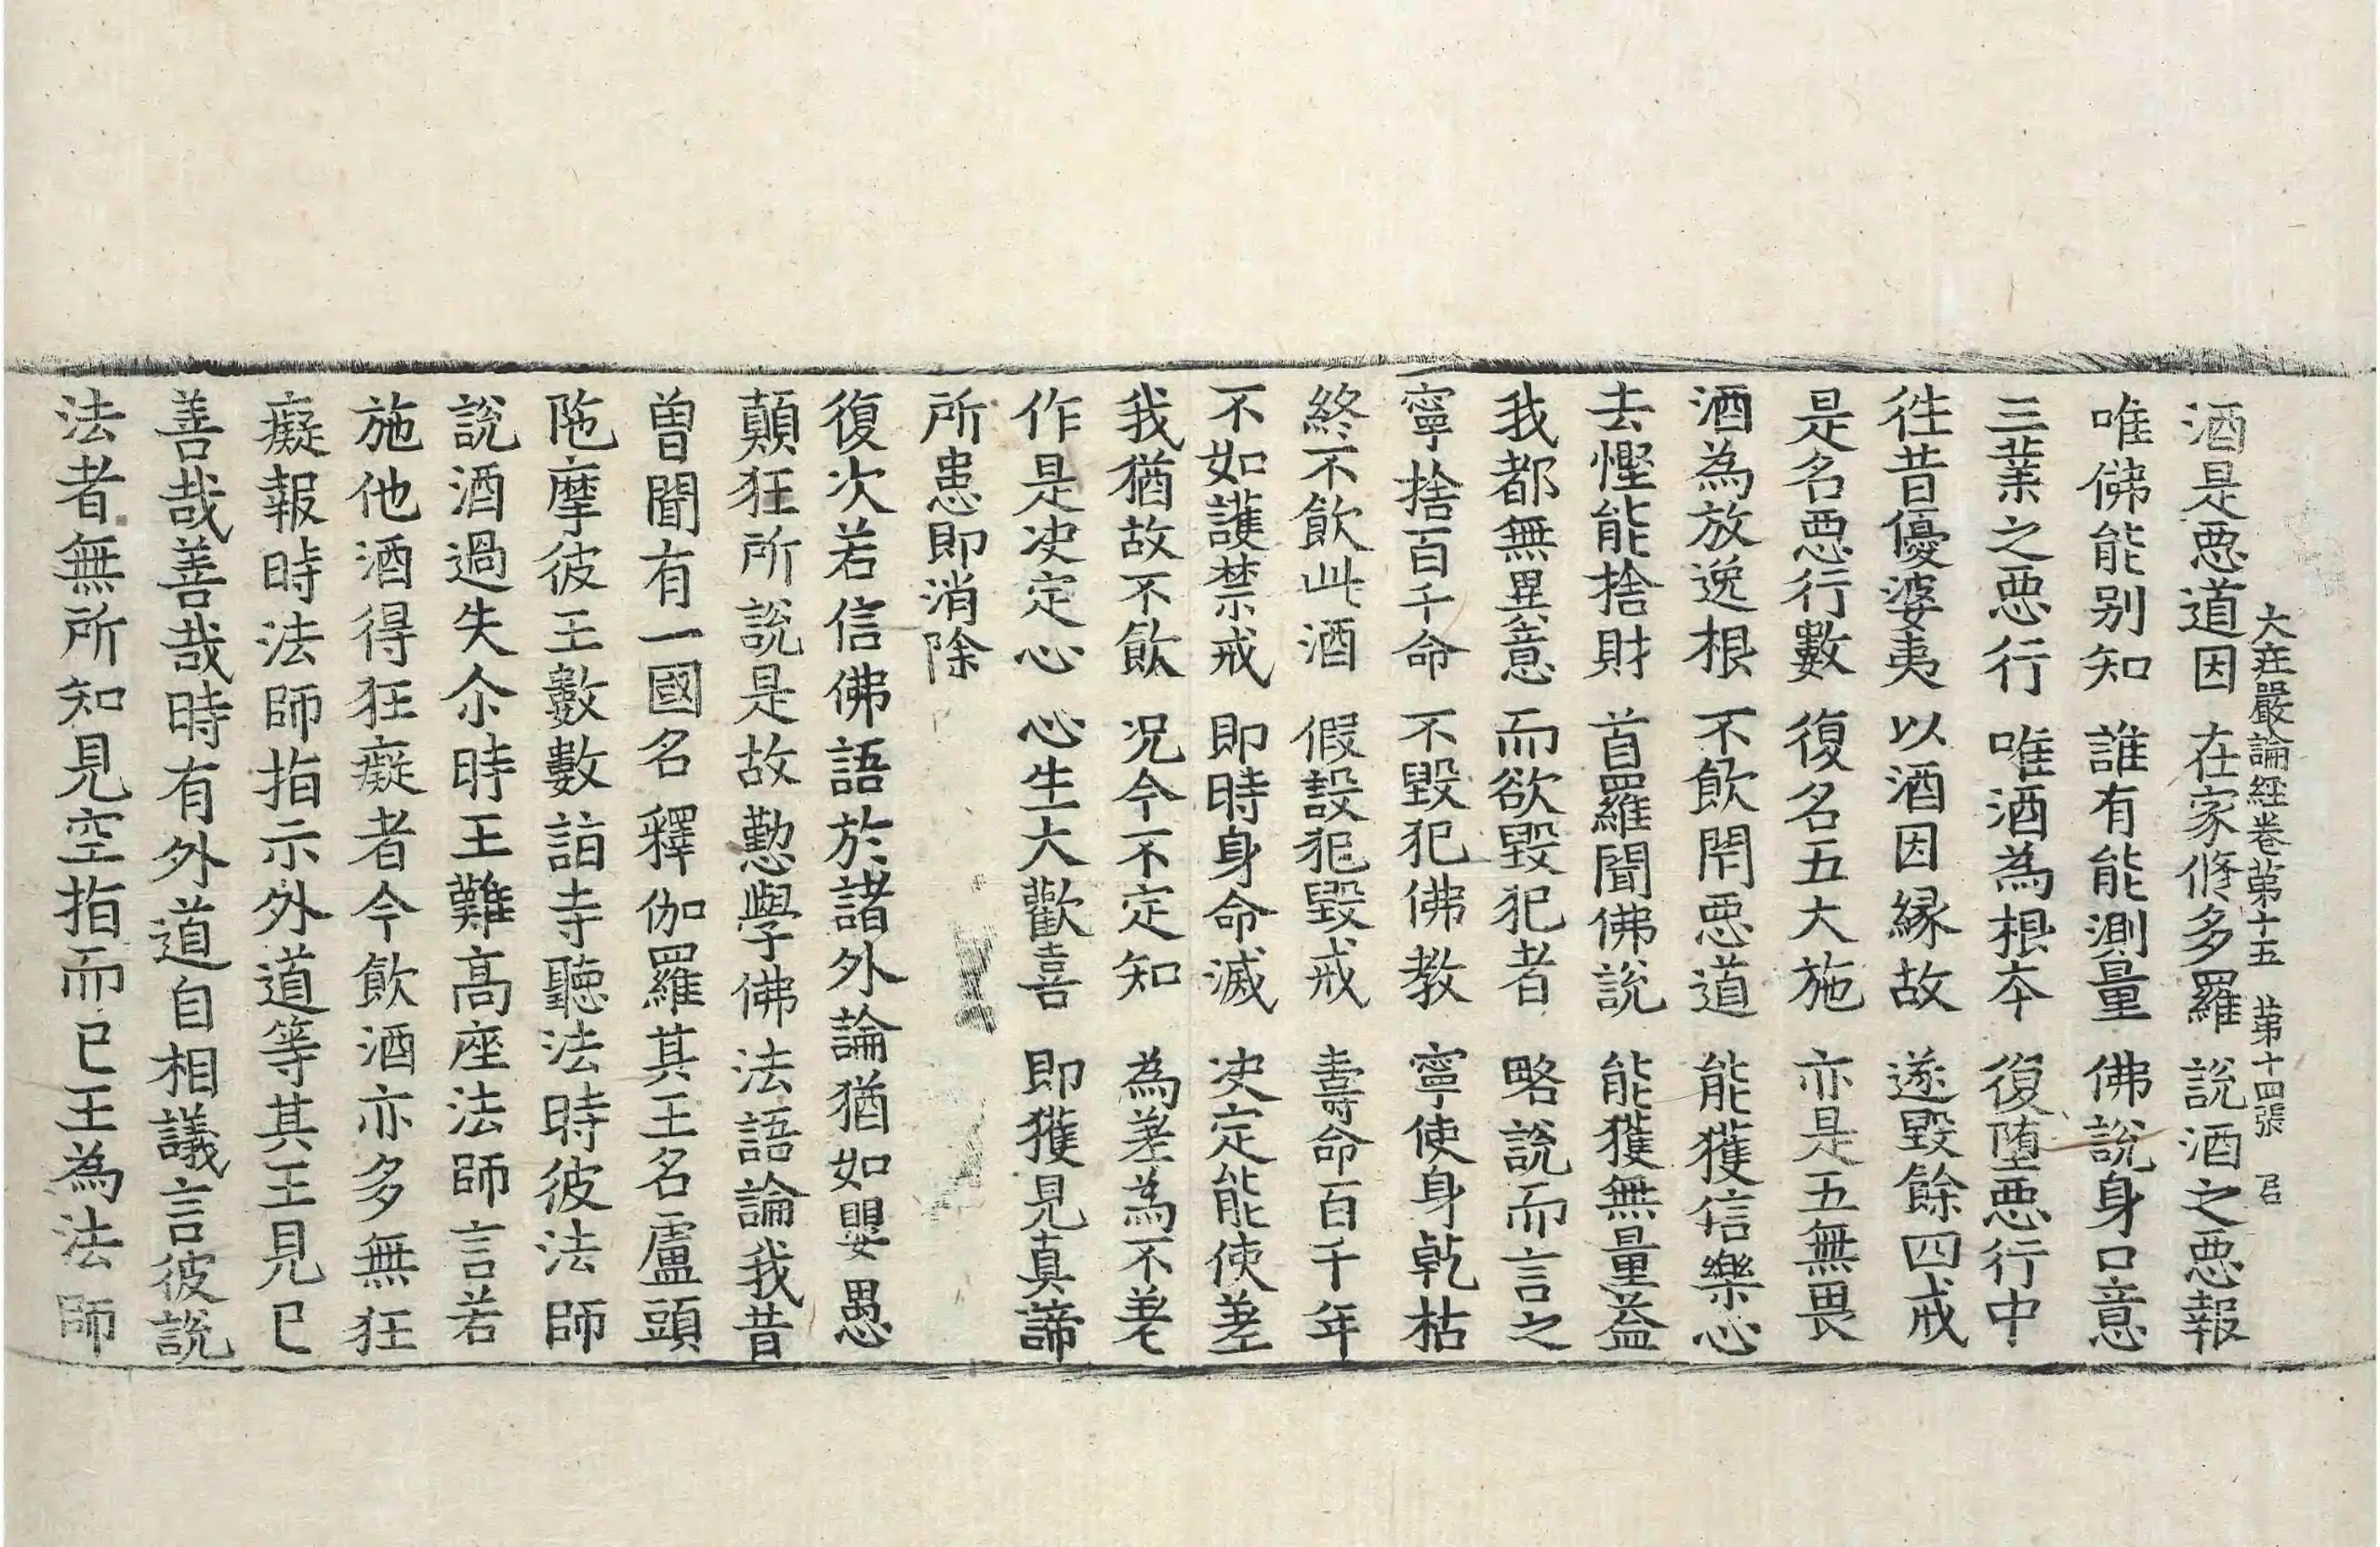 大莊嚴論經卷第十五　第十四張　君
酒是惡道因　在家修多羅　說酒之惡報
唯佛能別知　誰有能測量　佛說身口意
三業之惡行　唯酒為根本　復墮惡行中
往昔優婆夷　以酒因緣故　遂毀餘四戒
是名惡行數　復名五大施　亦是五無畏
酒為放逸根　不飲閇惡道　能獲信樂心
去慳能捨財　首羅聞佛說　能獲無量益
我都無異意　而欲毀犯者　略說而言之
寧捨百千命　不毀犯佛教　寧使身乾枯
終不飲此酒　假設犯毀戒　壽命百千年
不如護禁戒　即時身命滅　決定能使差
我猶故不飲　況今不定知　為差為不差
作是決定心　心生大歡喜　即獲見真諦
所患即消除
復次若信佛語於諸外論猶如嬰愚
顛狂所說是故懃學佛法語論我昔
曾聞有一國名釋伽羅其王名盧頭
陁摩彼王數數詣寺聽法時彼法師
說酒過失尒時王難高座法師言若
施他酒得狂癡者今飲酒亦多無狂
癡報時法師指示外道等其王見已
善哉善哉時有外道自相議言彼說
法者無所知見空指而已王為法師